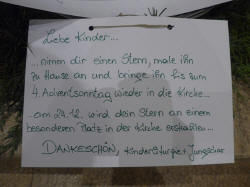 Liebe Kinder...
...nimm dir einen Stern, male ihn
zu Hause an und bringe ihn bis zum
4. Adventsonntag wieder in die Kirche...
...am 24.12. wird dein Stern an einem
besonderen Platz in der Kirche erstrahlen...
DANKESCHÖN, Kinderliturgie + Jungschar